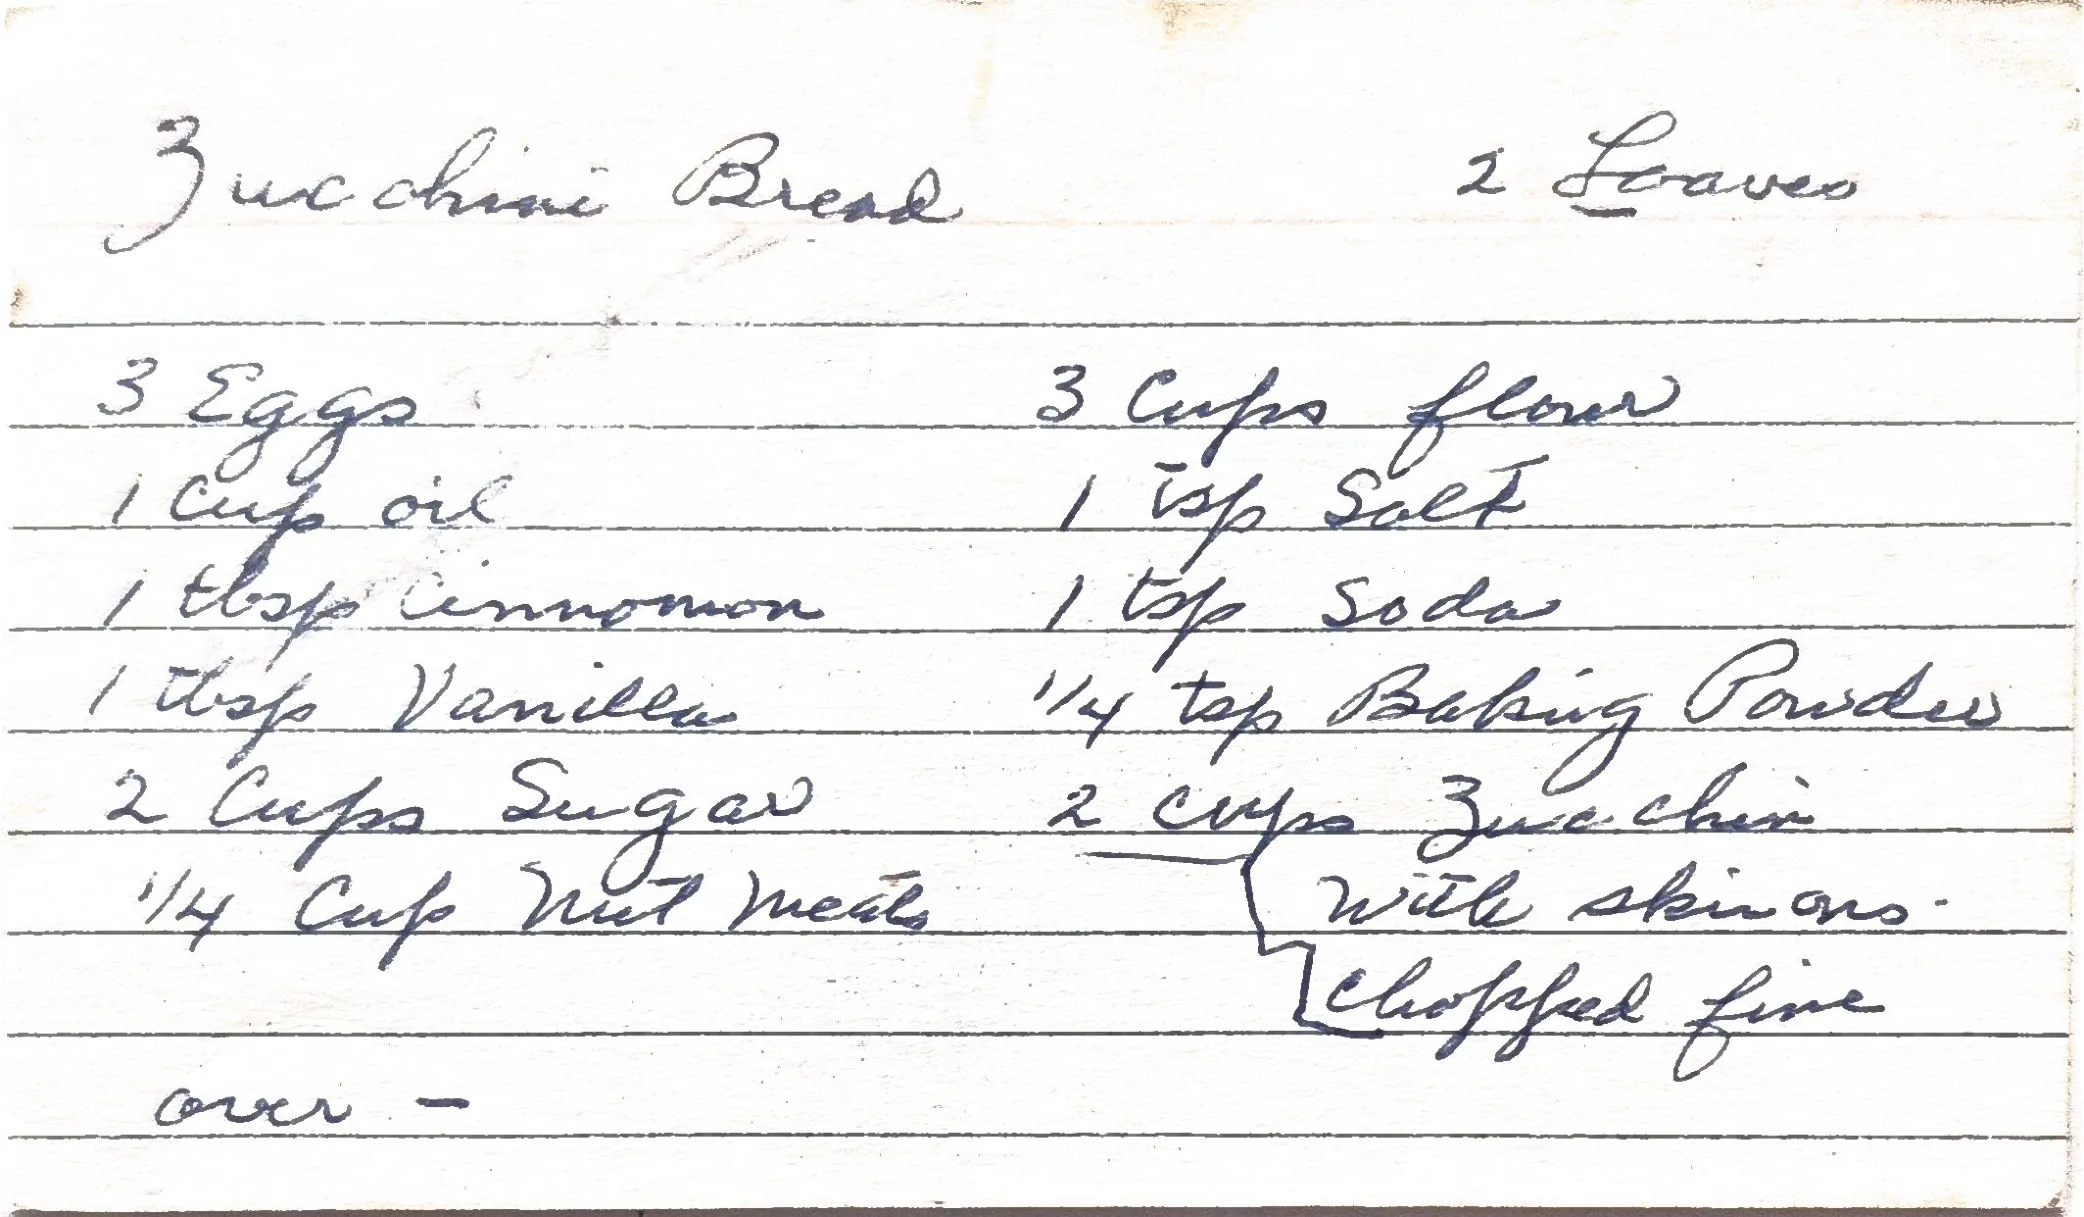 Zucchini Bread 2 Loaves
3 Eggs
1 Cup oil
1 tbsp Cinnomon
1 tbsp Vanilla
2 Cups Sugar
1/4 Cup Nut Meats
3 Cups flour
1 tsp Salt
1 tsp Soda
1/4 tsp Baking Powder
2 cups Zucchin
with skin ons.
chopped fine
over -